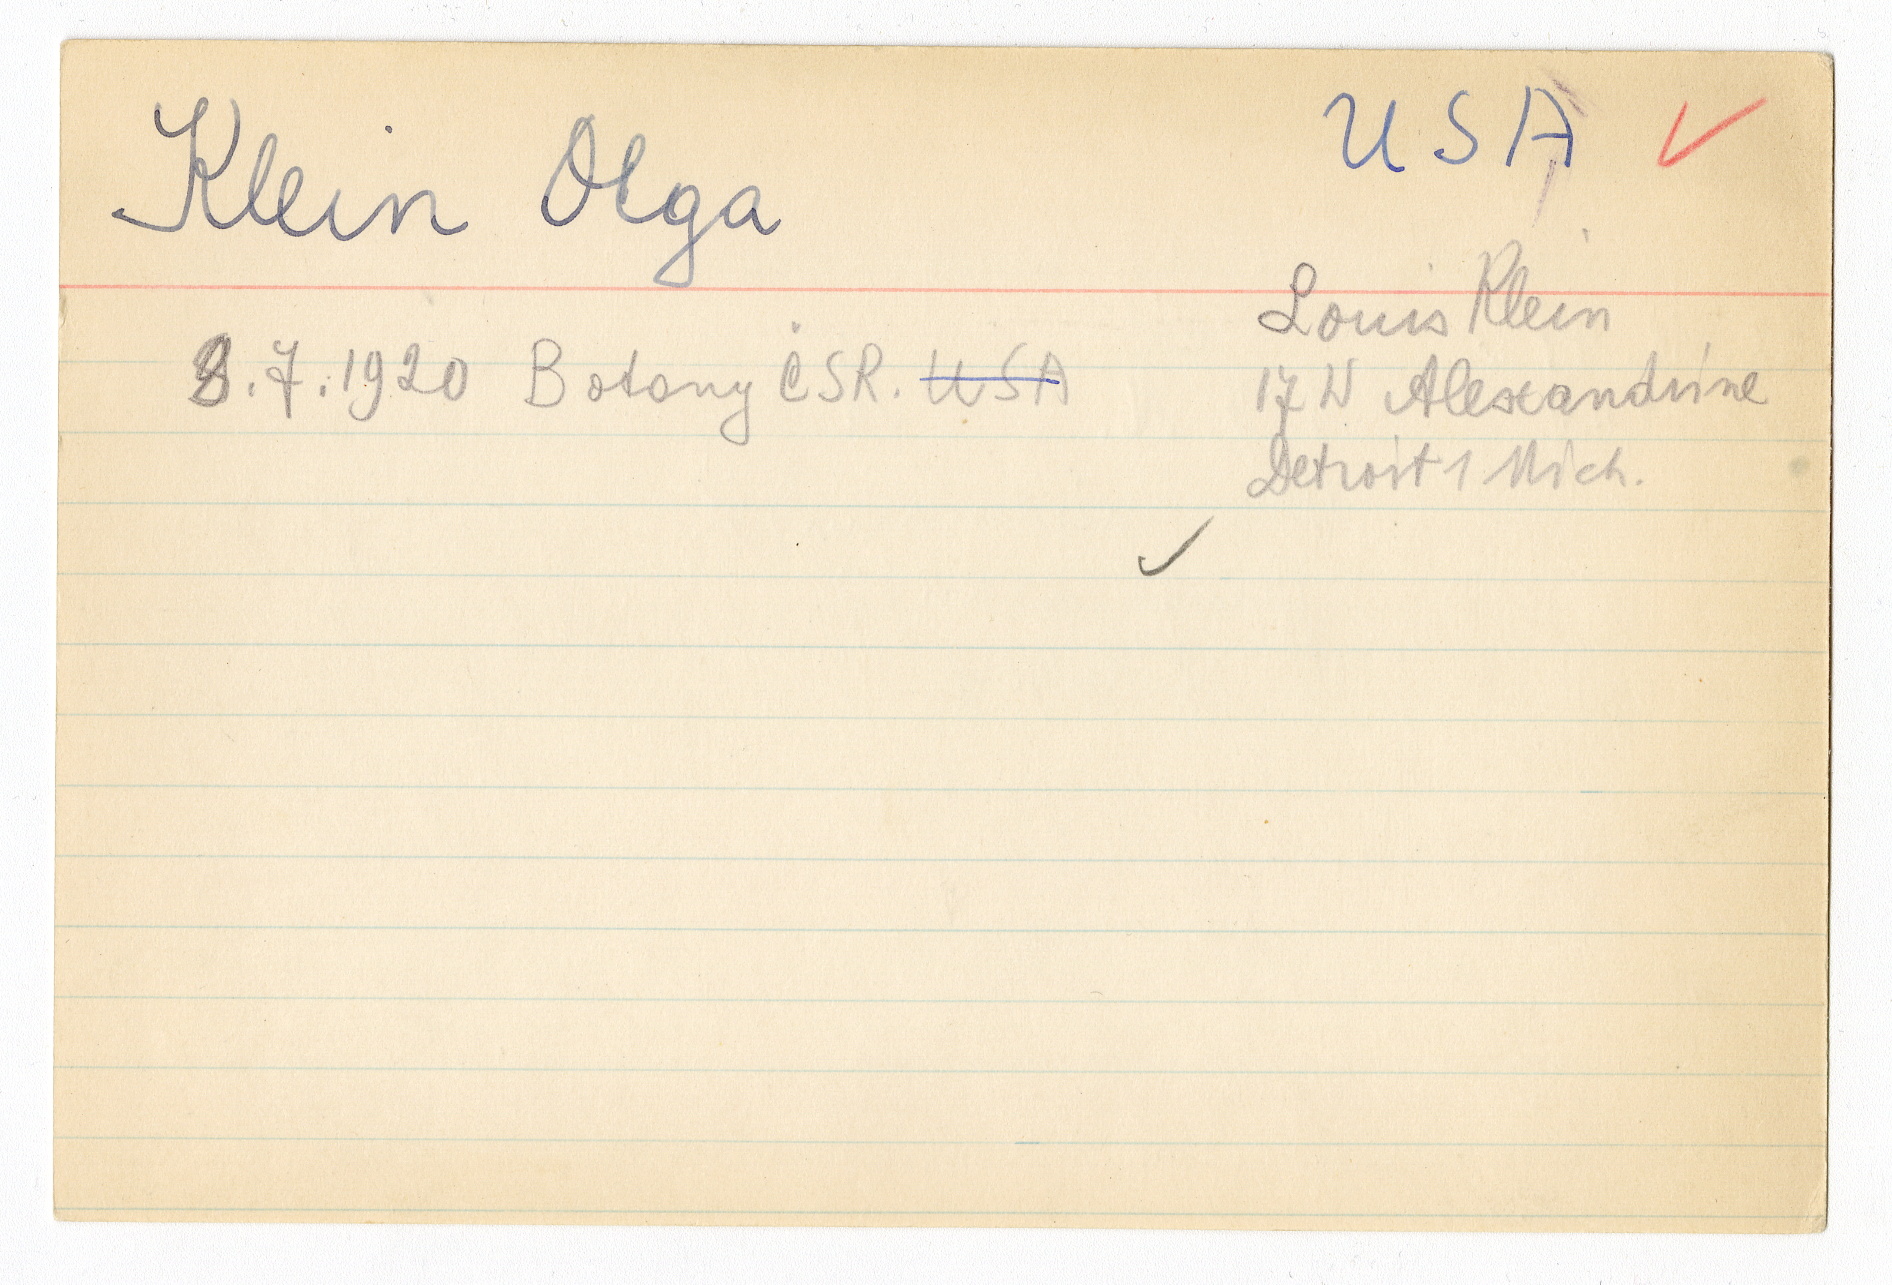 Klein Olga
USA ✓
8.7.1920 Botany ČSR. USA
Louis Klein
17 W Alexandrine
Detroit 1 Mich.
✓